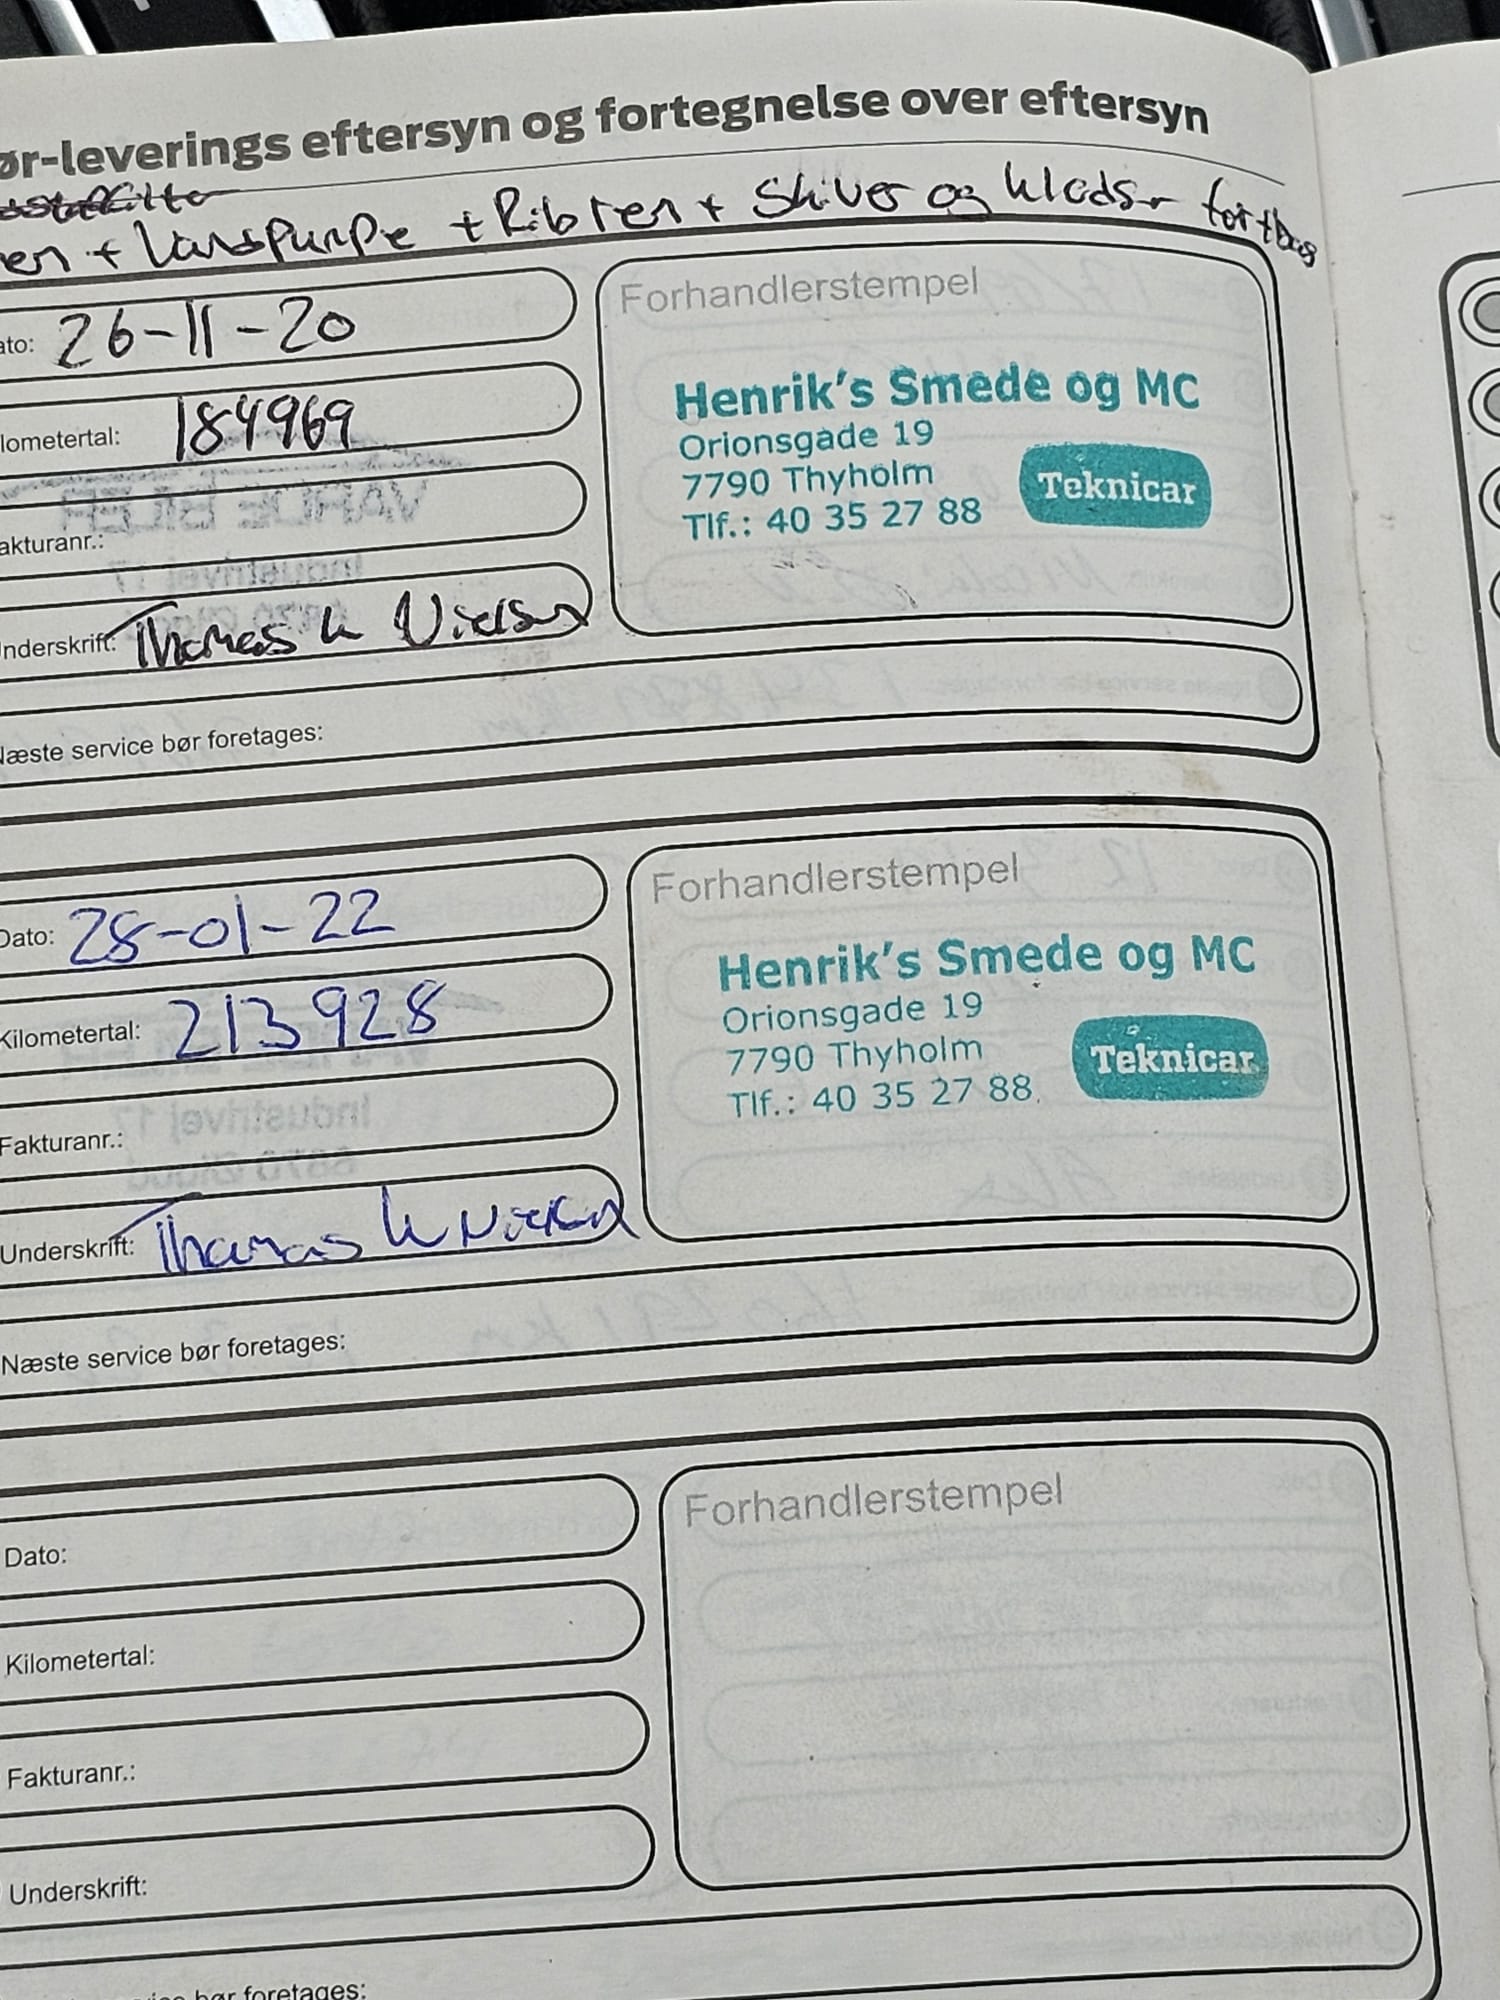 ør-leverings eftersyn og fortegnelse over eftersyn
en + Vandpumpe + Ribrem + Skiver og klodser for+bag
ato: 26-11-20
Forhandlerstempel
lometertal: 184969
Henrik's Smede og MC
Orionsgade 19
7790 Thyholm
Tlf.: 40 35 27 88
Teknicar
akturanr.:
nderskrift: Thomas K Nielsen
Næste service bør foretages:
Dato: 28-01-22
Forhandlerstempel
Kilometertal: 213928
Henrik's Smede og MC
Orionsgade 19
7790 Thyholm
Tlf.: 40 35 27 88
Teknicar
Fakturanr.:
Underskrift: Thomas K Nielsen
Næste service bør foretages:
Dato:
Forhandlerstempel
Kilometertal:
Fakturanr.:
Underskrift:
bør foretages: